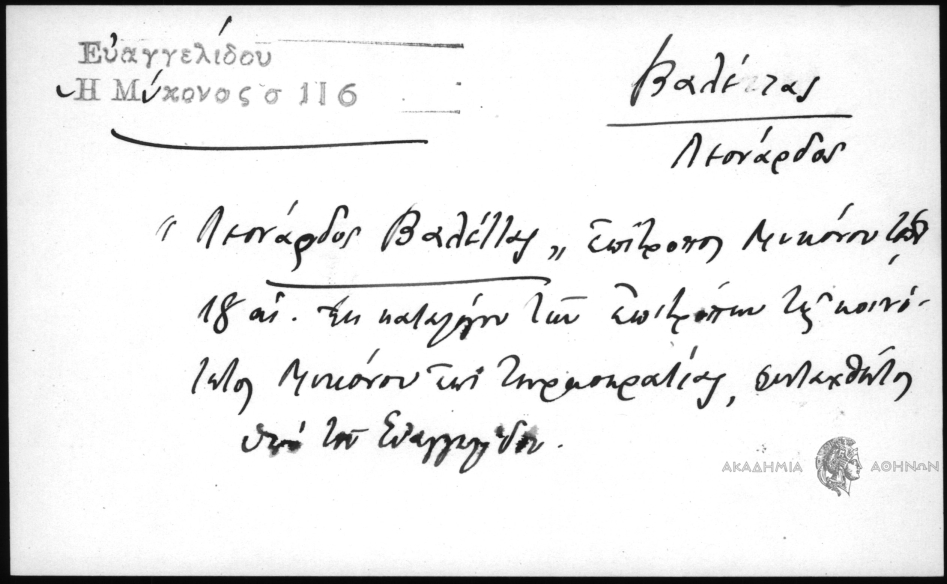 Εὐαγγελίδου
Ἡ Μύκονος σ 116
Βαλέττας
Λεονάρδος
"Λεονάρδος Βαλέττας" ἐπίτροπος Μυκόνου τῶν
18 αἰ. Ἐκ καταλόγου τῶν ἐπιτρόπων τῆς κοινό-
τητος Μυκόνου ἐπὶ τουρκοκρατίας, συνταχθέντος
ὑπὸ τοῦ Εὐαγγελίδου.
ΑΚΑΔΗΜΙΑ ΑΘΗΝΩΝ